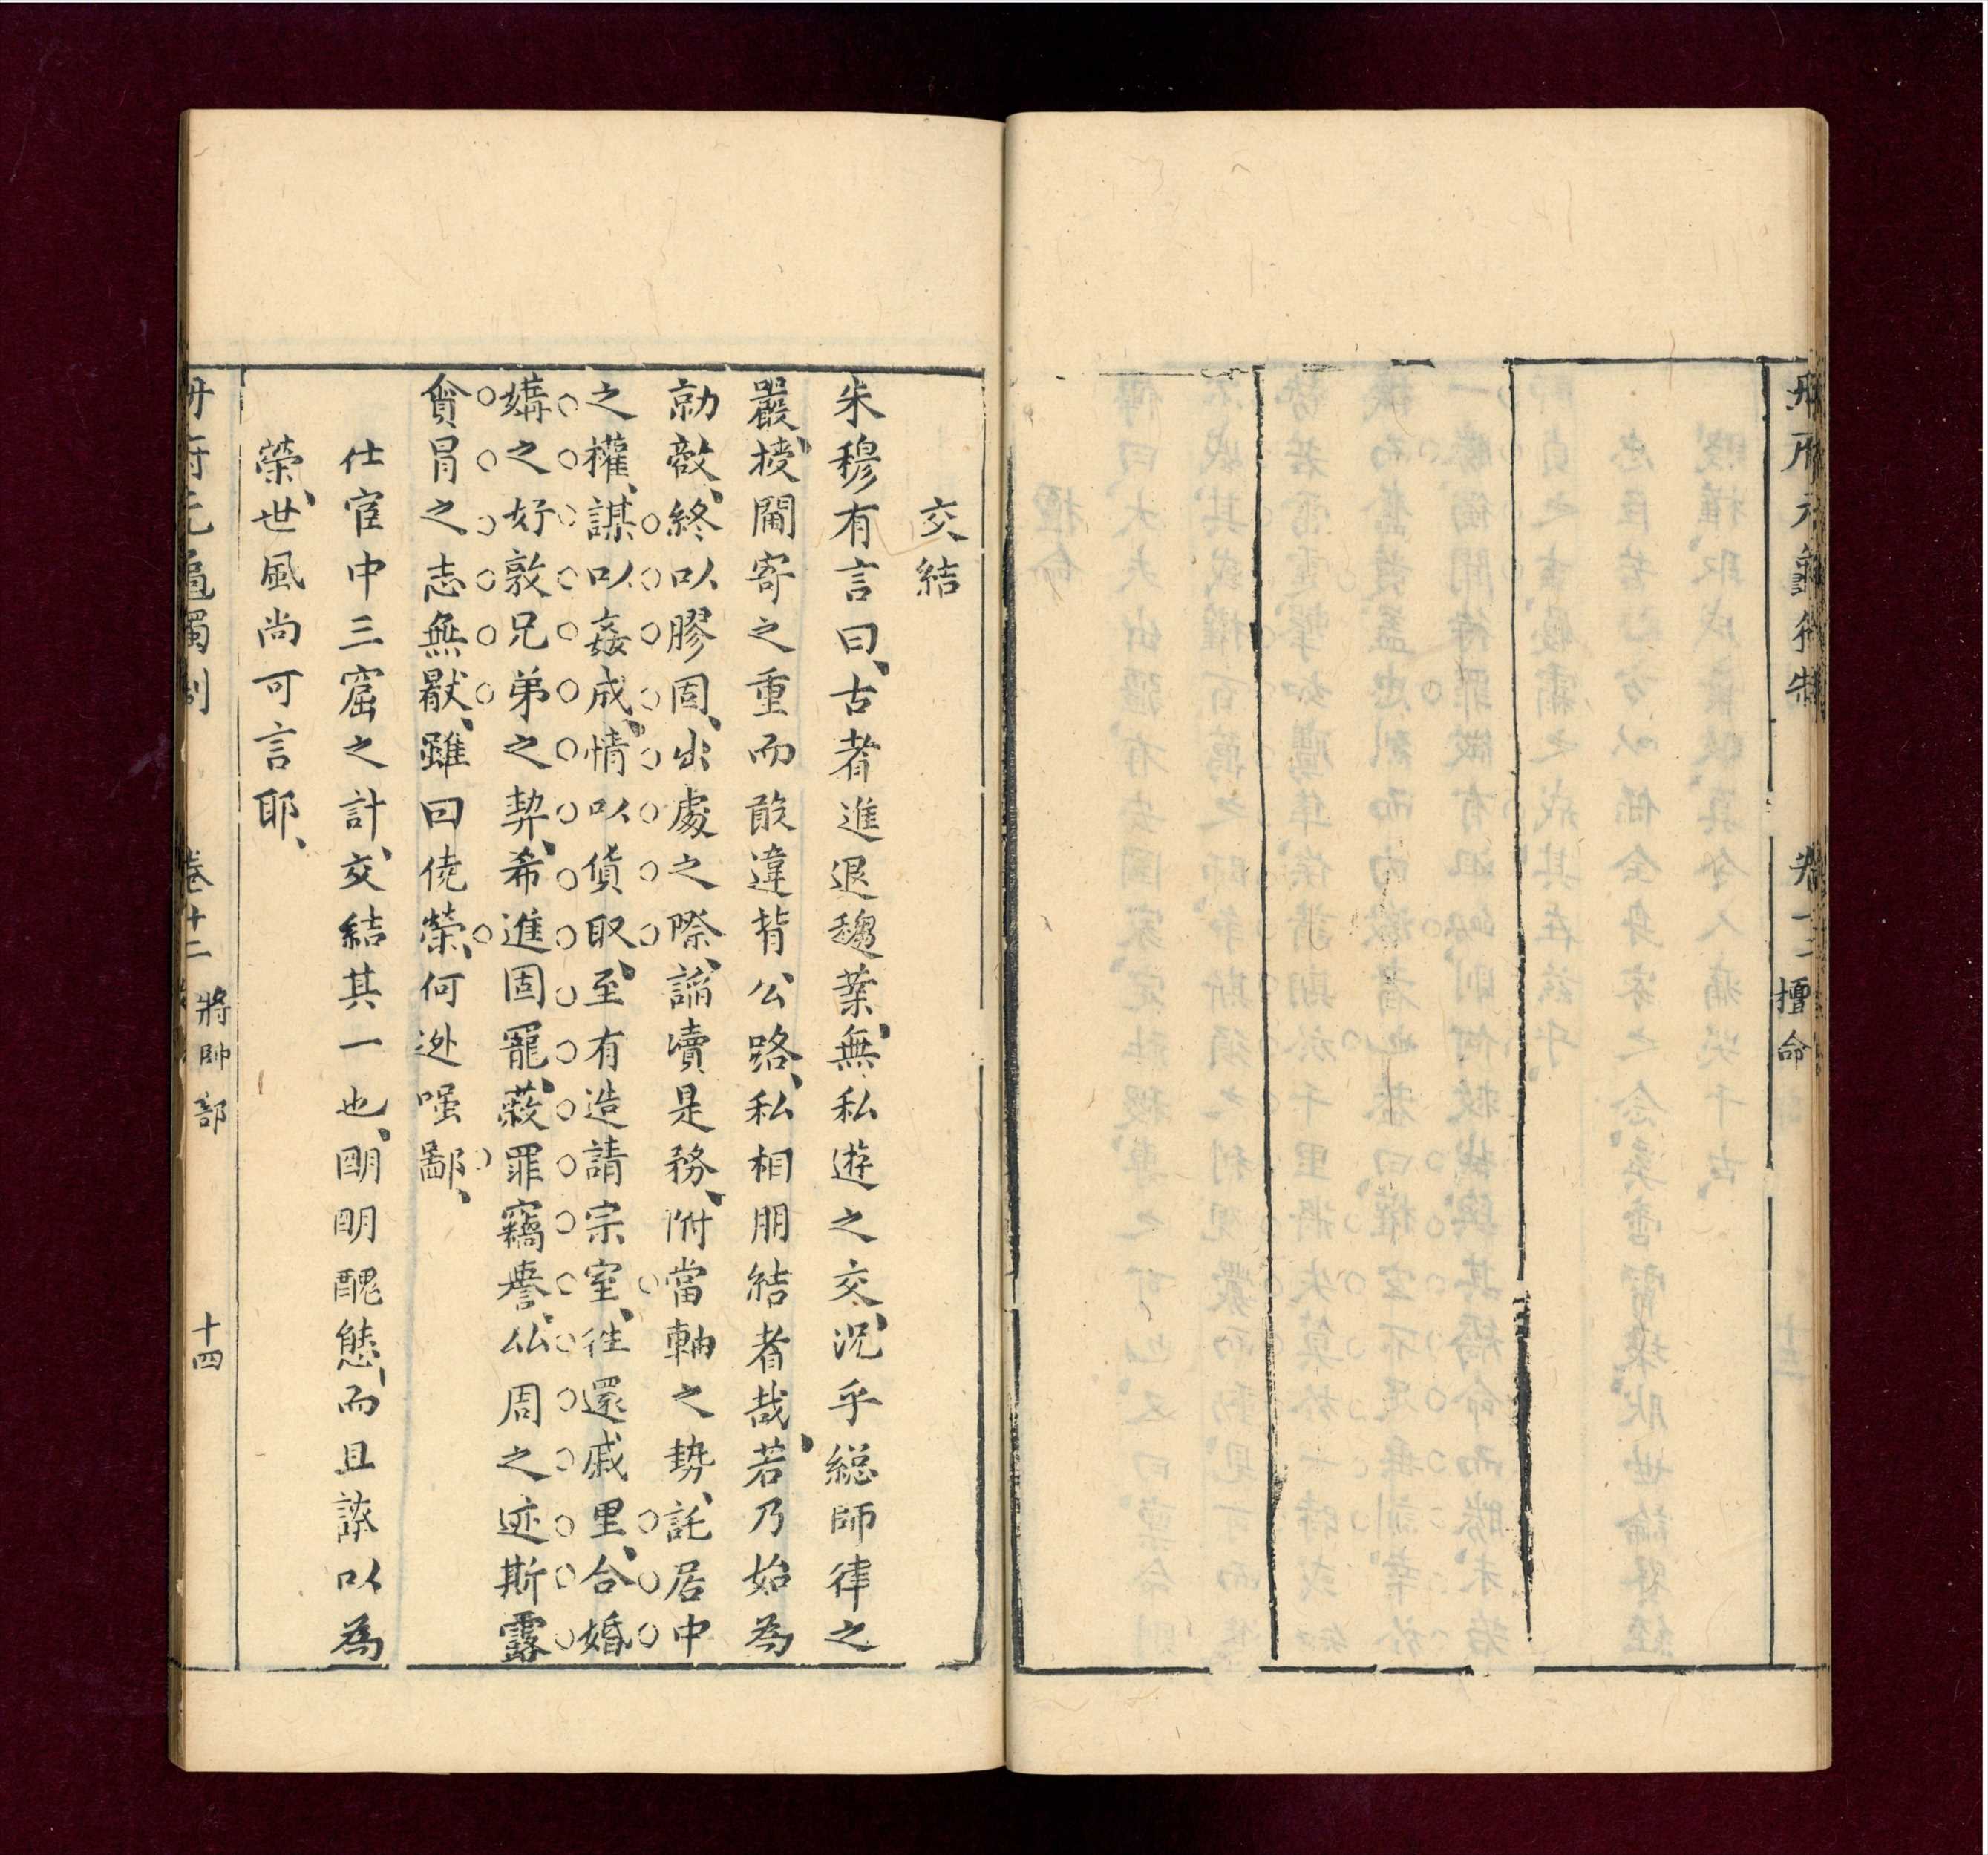 冊府元龜獨制
卷十二
擅命
交結
朱穆有言曰、古者進退趨業、無私遊之交、況乎総師律之
嚴、授閫寄之重而敢違背公路、私相朋結者哉、若乃始為
勍敵、終以膠固、出處之際、謟瀆是務、附當軸之勢、託居中
之權、謀以姦成、情以貨取、至有造請宗室、徃還戚里、合婚
媾之好、敦兄弟之契、希進固寵、蔽罪竊譽、仏周之迹斯露
貪冐之志無猒、雖曰僥榮、何迯嗤鄙、
仕宦中三窟之計、交結其一也、明明醜態、而且誇以為
榮、世風尚可言耶、
冊府元龜獨制
卷十二
將帥部
十四